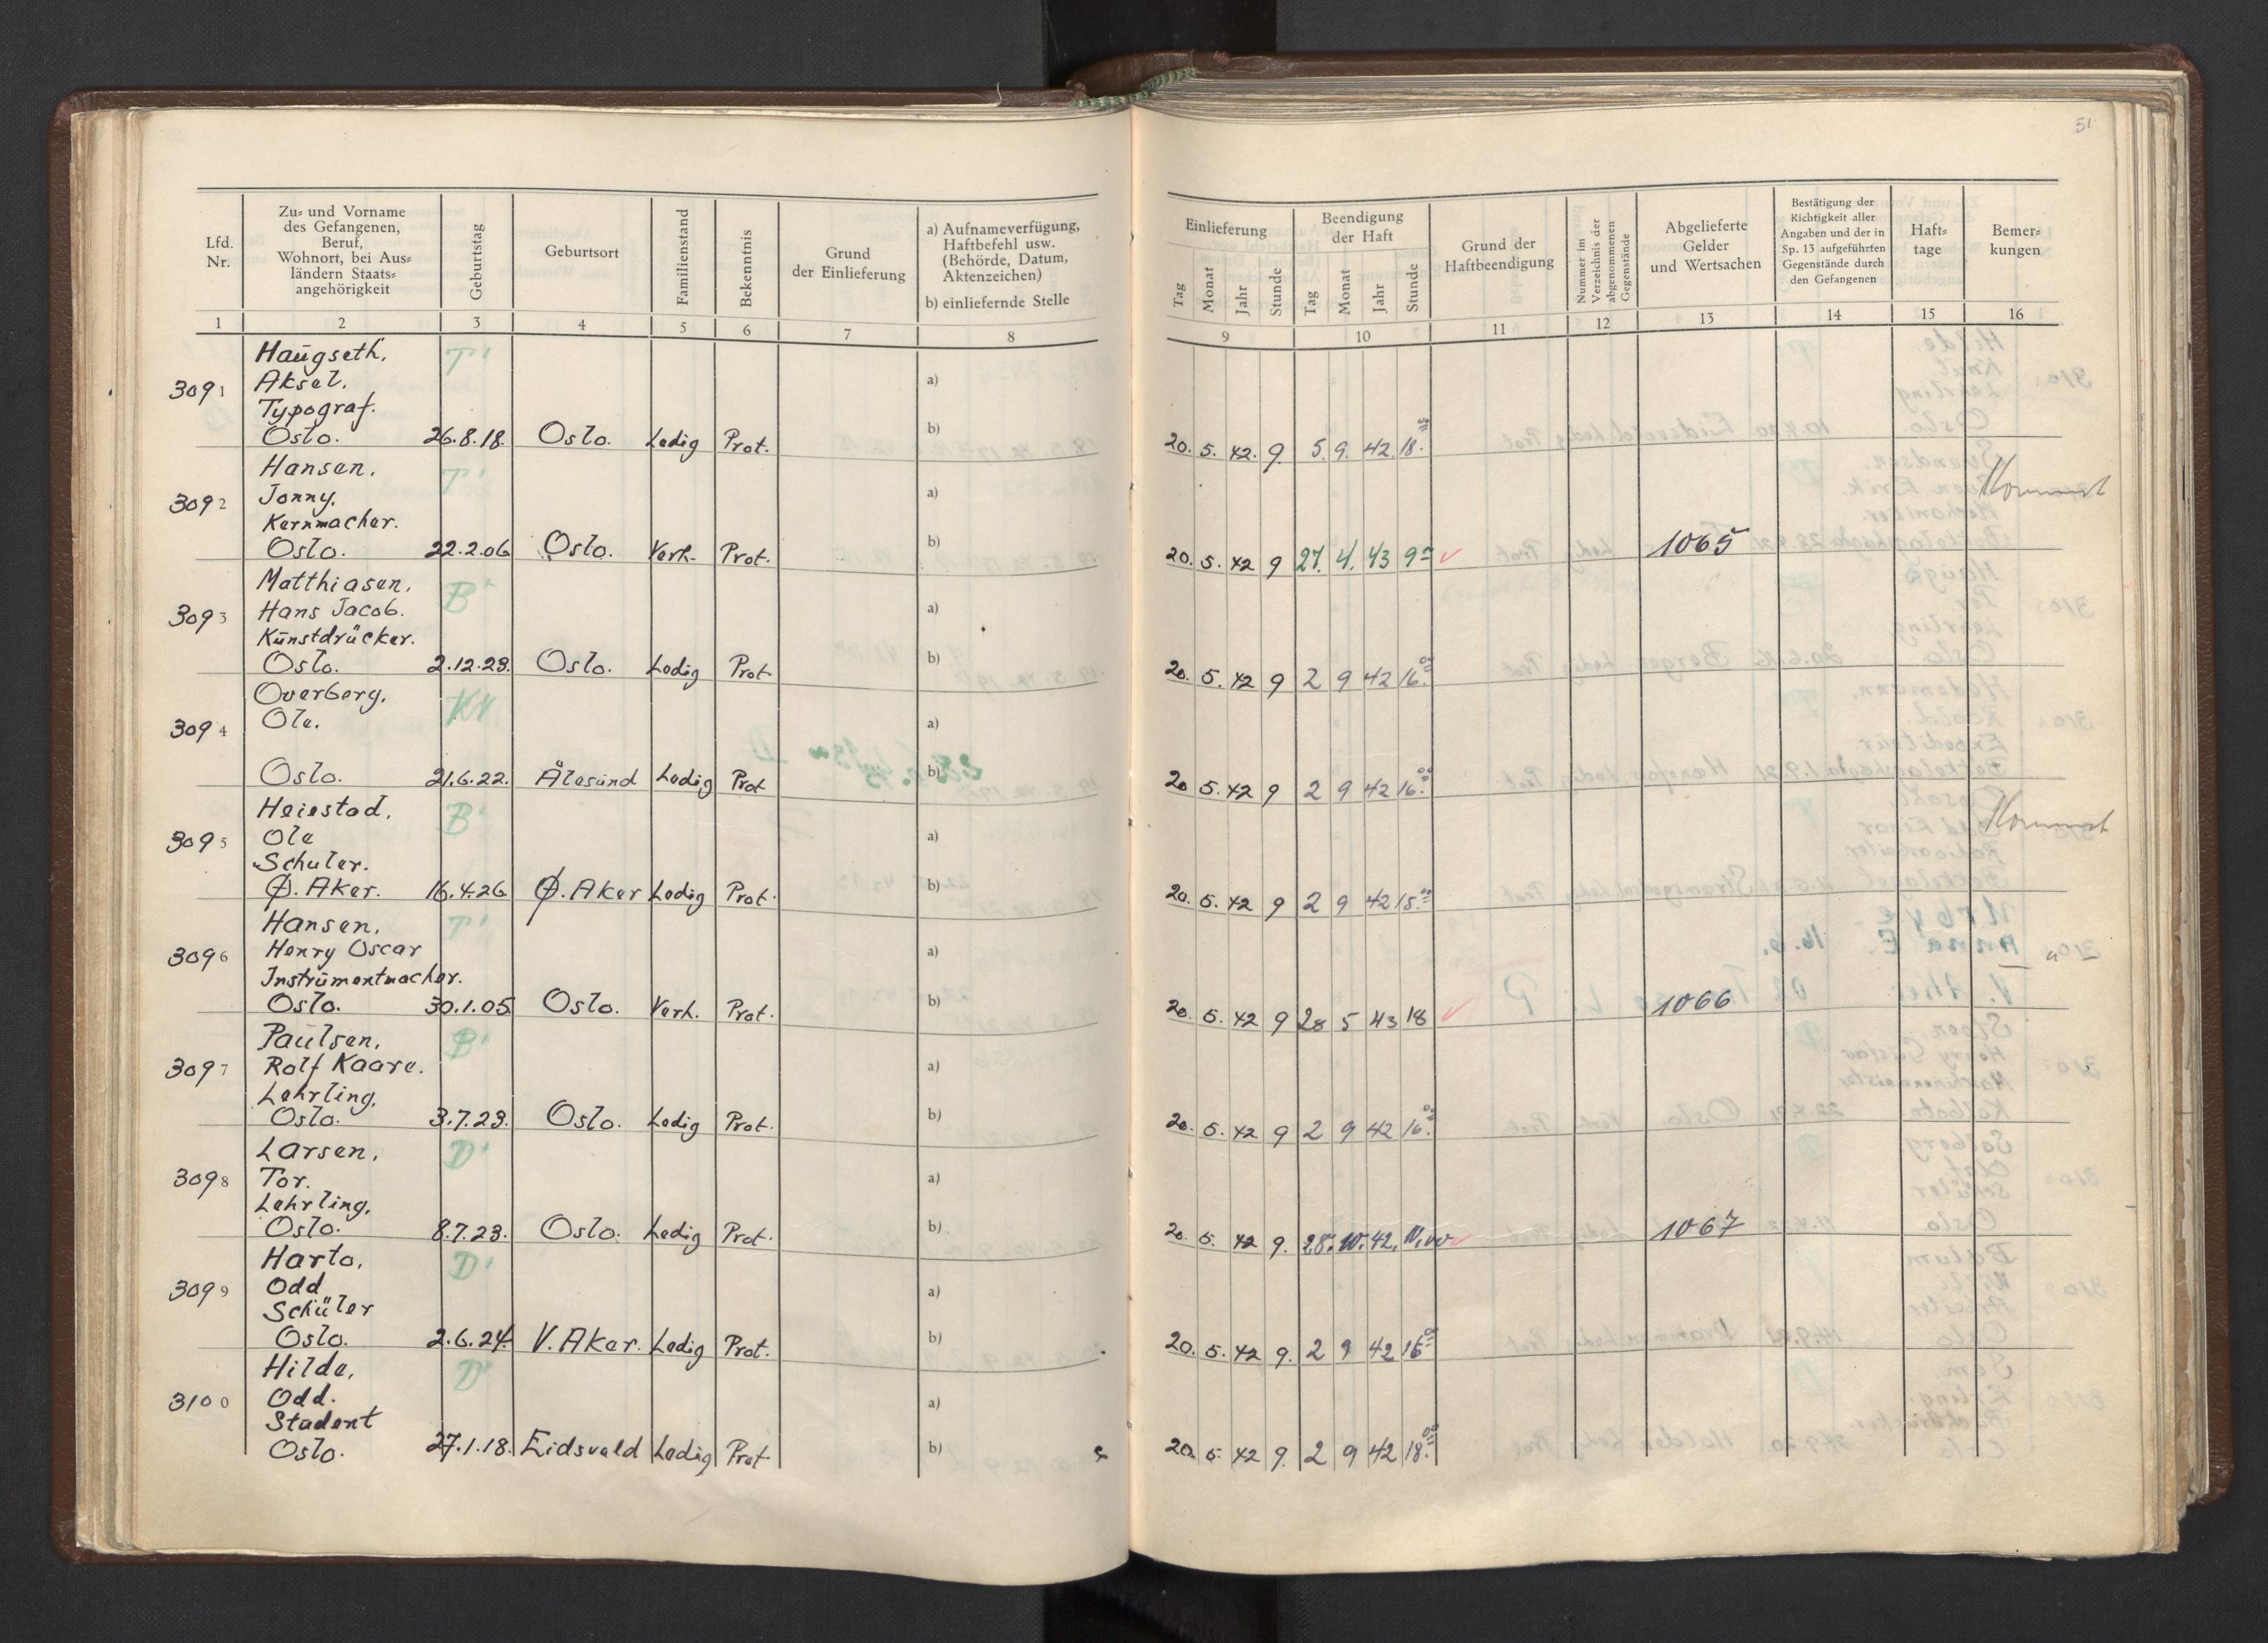 51
Lfd. Nr.
Zu- und Vorname
des Gefangenen,
Beruf,
Wohnort, bei Aus-
ländern Staats-
angehörigkeit
Geburtstag
Geburtsort
Familienstand
Bekenntnis
Grund
der Einlieferung
a) Aufnameverfügung,
Haftbefehl usw.
(Behörde, Datum,
Aktenzeichen)
b) einliefernde Stelle
Einlieferung
Tag Monat Jahr Stunde
Beendigung
der Haft
Tag Monat Jahr Stunde
Grund der
Haftbeendigung
Nummer im
Verzeichnis der
abgenommenen
Gegenstände
Abgelieferte
Gelder
und Wertsachen
Bestätigung der
Richtigkeit aller
Angaben und der in
Sp. 13 aufgeführten
Gegenstände durch
den Gefangenen
Haft-
tage
Bemer-
kungen
1 2 3 4 5 6 7 8 9 10 11 12 13 14 15 16
Haugseth, T'
3091 Aksel. a)
Typograf.
Oslo. 26.8.18. Oslo. Ledig Prot. b) 20. 5. 42. 9. 5. 9. 42. 18.
Hansen, T'
3092 Jonny. a)
Kernmacher.
Oslo. 22.2.06 Oslo. Verh. Prot. b) 20. 5. 42 9 27. 4. 43 9 1065
Matthiasen, B'
3093 Hans Jacob. a)
Kunstdrücker.
Oslo. 2.12.23. Oslo. Ledig Prot b) 20. 5. 42 9 2 9 42 16.00
Overberg,
3094 Ole. a)
Oslo. 21.6.22. Ålesund Ledig Prot b) 20 5. 42 9 2 9 42 16.00
Heiestad, B'
3095 Ole a)
Schuler.
Ø. Aker. 16.4.26 Ø. Aker Ledig Prot. b) 20. 5. 42 9 2 9 42 15.00
Hansen, T'
3096 Henry Oscar a)
Instrumentmacher.
Oslo. 30.1.05 Oslo. Verh. Prot. b) 20. 5. 42 9 28 5 43 18 1066
Paulsen, B'
3097 Rolf Kaare. a)
Lehrling.
Oslo. 3.7.23. Oslo. Ledig Prot. b) 20. 5. 42 9 2 9 42 16.00
Larsen, D'
3098 Tor. a)
Lehrling.
Oslo. 8.7.23. Oslo. Ledig Prot. b) 20 5. 42 9. 28. 10. 42. 1067
Harto, D'
3099 Odd a)
Schüler
Oslo. 2.6.24. V. Aker. Ledig Prot. b) 20. 5. 42 9. 2 9 42 16
Hilde, D'
3100 Odd. a)
Student
Oslo. 27.1.18. Eidsvald Ledig Prot b) 20. 5. 42 9. 2 9 42 18.00